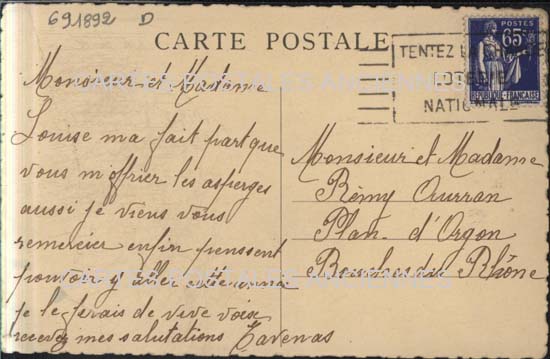 691892 D
CARTE POSTALE
POSTES
65c
REPUBLIQUE FRANÇAISE
TENTEZ
NATIONALE
Monsieur et Madame
Louise m'a fait part que
vous m'offrier les asperges
aussi je viens vous
remercier enfin penssent
pouvoir y aller cette
je le ferais de vive voix
recevez mes salutations Tavenas
Monsieur et Madame
Rémy Ourran
Plan d'Orgon
Bouches du Rhône
CARTES POSTALES ANCIENNES
CARTES POSTALES ANCIENNES